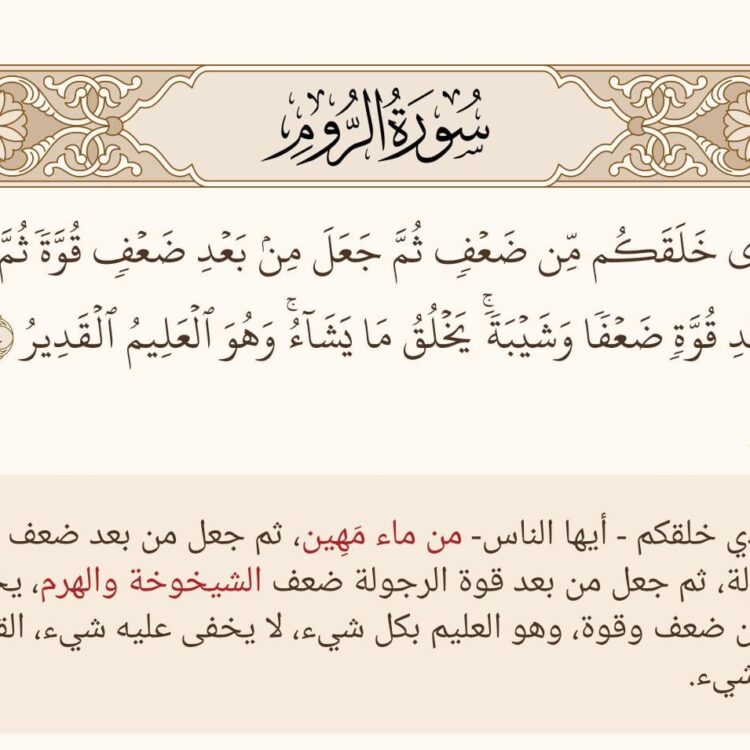 سُورَةُ الرُّومِ
خَلَقَكُم مِّن ضَعۡفٖ ثُمَّ جَعَلَ مِنۢ بَعۡدِ ضَعۡفٖ قُوَّةٗ ثُمَّ
قُوَّةٖ ضَعۡفٗا وَشَيۡبَةٗۚ يَخۡلُقُ مَا يَشَآءُۚ وَهُوَ ٱلۡعَلِيمُ ٱلۡقَدِيرُ
خلقكم - أيها الناس- من ماء مَهِين، ثم جعل من بعد ضعف
ثم جعل من بعد قوة الرجولة ضعف الشيخوخة والهرم،
ضعف وقوة، وهو العليم بكل شيء، لا يخفى عليه شيء،
شيء.